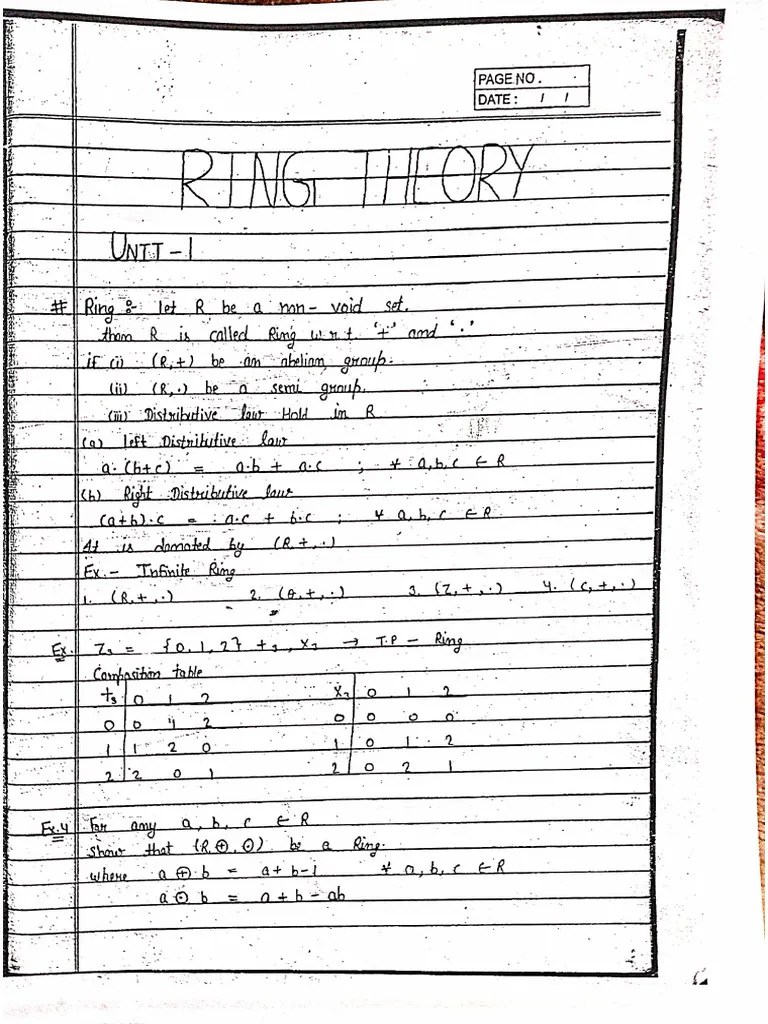 PAGE NO.
DATE: / /
RING THEORY
UNIT-1
# Ring :- let R be a non-void set.
then R is called Ring w.r.t. '+' and '.'
if (i) (R,+) be an abelian group.
(ii) (R,.) be a semi group.
(iii) Distributive law Hold in R
(a) left Distributive law
a.(b+c) = a.b + a.c ; ∀ a,b,c ∈ R
(b) Right Distributive law
(a+b).c = a.c + b.c ; ∀ a,b,c ∈ R
It is denoted by (R,+,.)
Ex.- Infinite Ring
1. (R,+,.) 2. (Q,+,.) 3. (Z,+,.) 4. (C,+,.)
Ex. Z₃ = {0,1,2} +₃, ×₃ → T.P - Ring
Composition table
+₃ 0 1 2 ×₃ 0 1 2
0 0 1 2 0 0 0 0
1 1 2 0 1 0 1 2
2 2 0 1 2 0 2 1
Ex.4 For any a, b, c ∈ R
show that (R,⊕,⊙) be a Ring.
where a ⊕ b = a+b-1 ∀ a,b,c ∈ R
a ⊙ b = a+b-ab